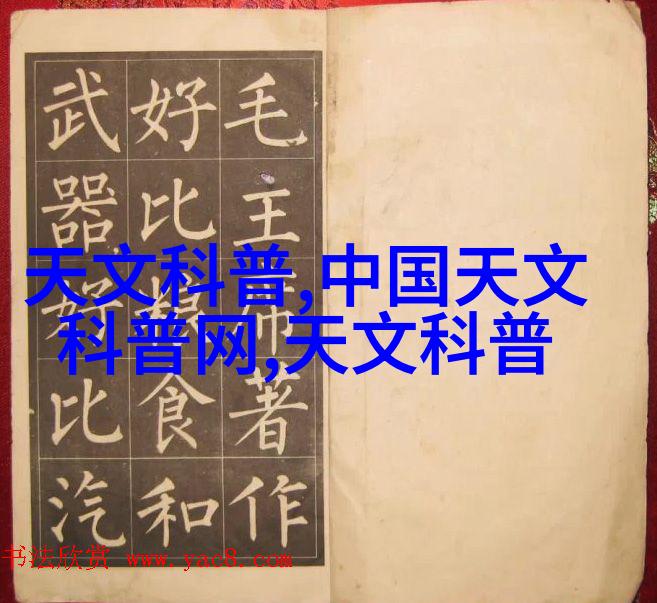 毛主席著作
好比粮食和
武器好比汽
天文科普,中国天文
科普网,天文科普
书法欣赏 www.yac8.com